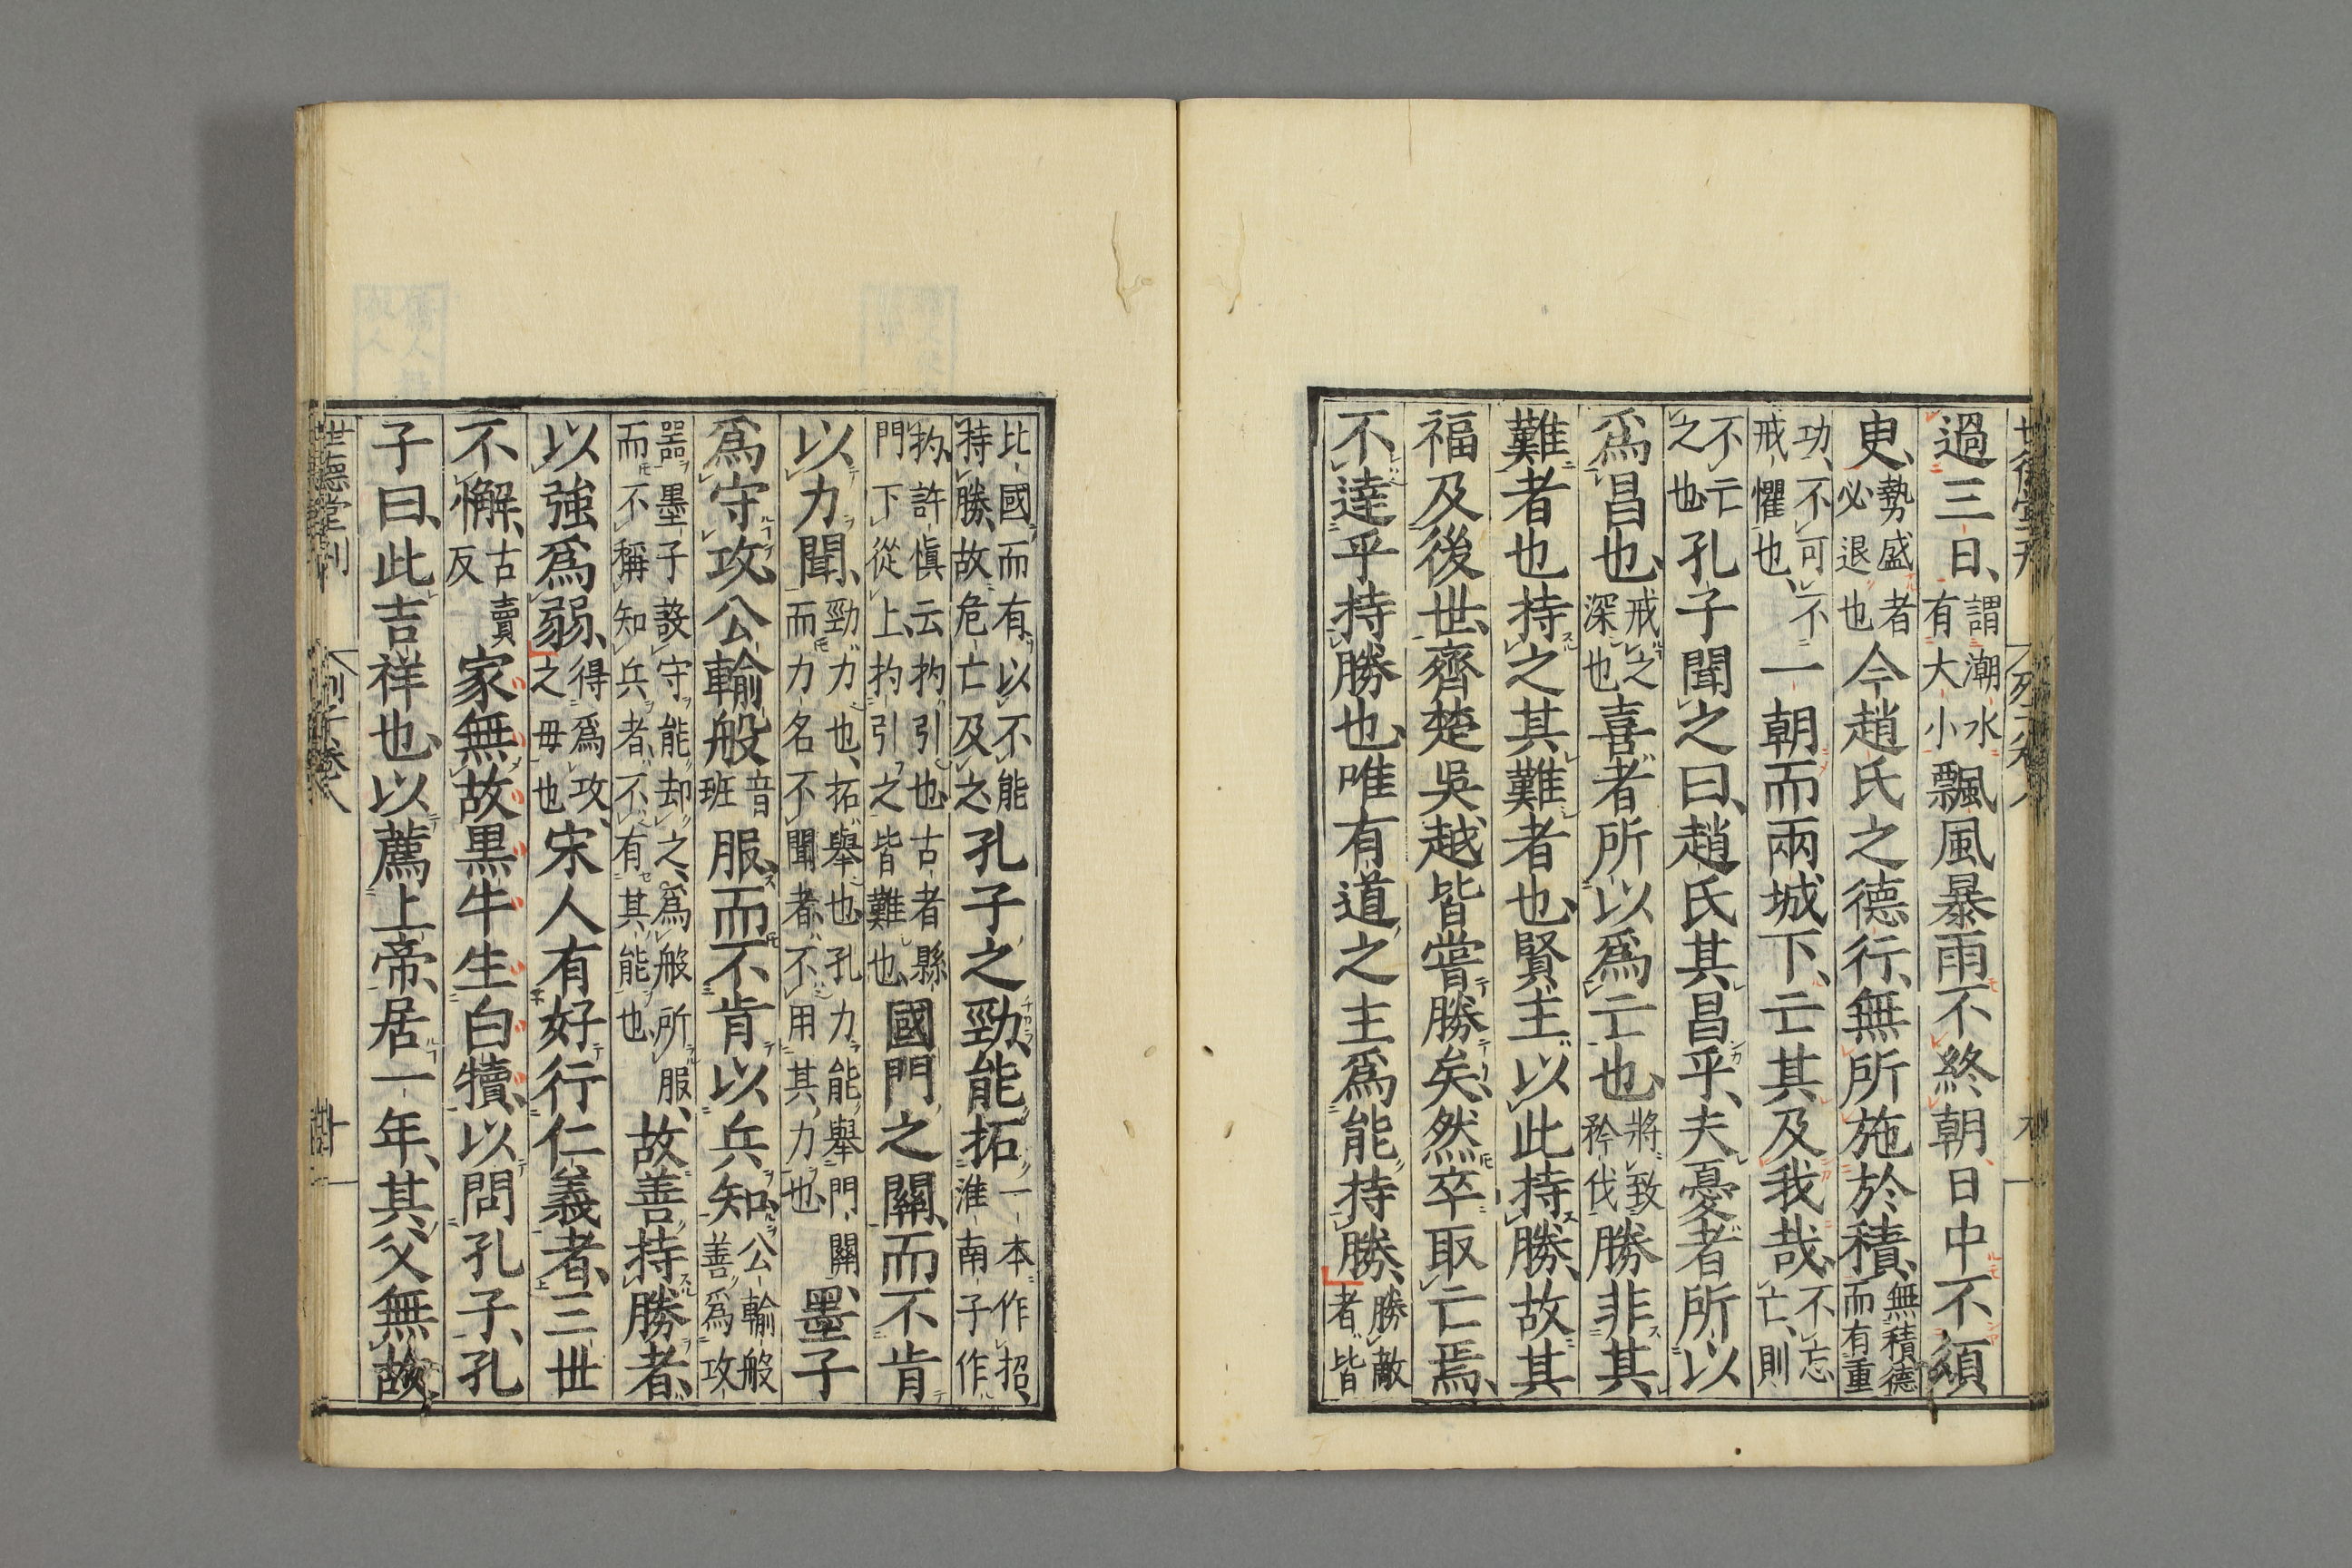 過三日、謂潮水有大小飄風暴雨不終朝日中不須
臾、勢盛者必退也今趙氏之德行、無所施於積、無積德而有重
功、不可不戒懼也、一朝而兩城下、亡其及我哉、不忘亡、則
不亡之也孔子聞之曰、趙氏其昌乎、夫憂者所以
爲昌也、戒之深也喜者所以爲亡也、將致矜伐勝非其
難者也持之其難者也、賢主以此持勝、故其
福及後世、齊楚吳越皆嘗勝矣、然卒取亡焉、
不達乎持勝也、唯有道之主爲能持勝、勝敵者皆
比國而有以不能持勝、故危亡及之孔子之勁、能拓一本作招、淮南子作
杓、許愼云杓引也、古者縣門下從上、杓引之皆難也、國門之關、而不肯
以力聞、勁力也、拓舉也、孔力能舉門關、而力名不聞者、不用其力也、墨子
爲守攻、公輸般音班服、而不肯以兵知、公輸般善爲攻
器墨子設守能却之、爲般所服、而不稱知兵者、不有其能也、故善持勝者、
以強爲弱、得爲攻之毋也宋人有好行仁義者、三世
不懈、古賣反家無故黒牛生白犢、以問孔子、孔
子曰、此吉祥也、以薦上帝、居一年、其父無故
世德堂刊
列子卷八